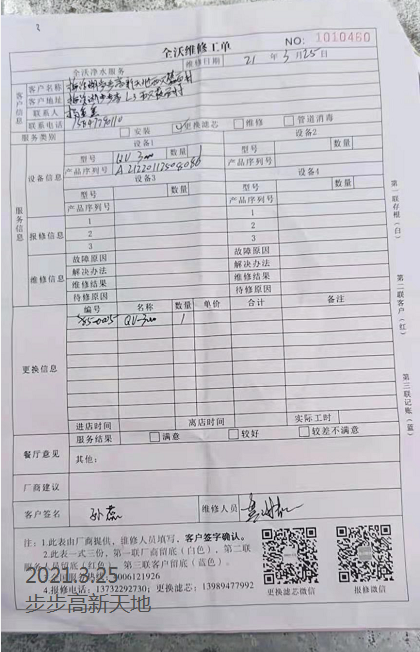 全沃维修工单
NO: 1010460
全沃净水服务
维修日期 21 年 3 月 25 日
客户信息
客户名称
客户地址
联系人
联系电话
服务类别 安装 更换滤芯 维修 管道消毒
服务信息
设备信息
设备1 设备2
型号 QU 300 数量 1 型号 数量
产品序列号 产品序列号
设备3 设备4
型号 数量 型号 数量
产品序列号 产品序列号
报修信息
1 1
2 2
3 3
维修信息
故障原因 故障原因
解决办法 解决办法
维修结果 维修结果
待修原因 待修原因
更换信息
编号 名称 数量 单价 合计 备注
QU-300 1
进店时间 离店时间 实际工时
餐厅意见
服务结果 满意 较好 较差不满意
其他:
厂商建议
客户签名 孙蕊 维修人员
第一联存根(白)
第二联客户(红)
第三联记账(蓝)
注:1.此表由厂商提供,维修人员填写,客户签字确认。
2.此表一式三份,第一联厂商留底(白色),第二联
服务人员留底(红色),第三联客户留底(蓝色)。
006121926
4.报修电话:13732292730;更换滤芯:13989477992
更换滤芯微信 报修微信
2021.3.25
步步高新天地